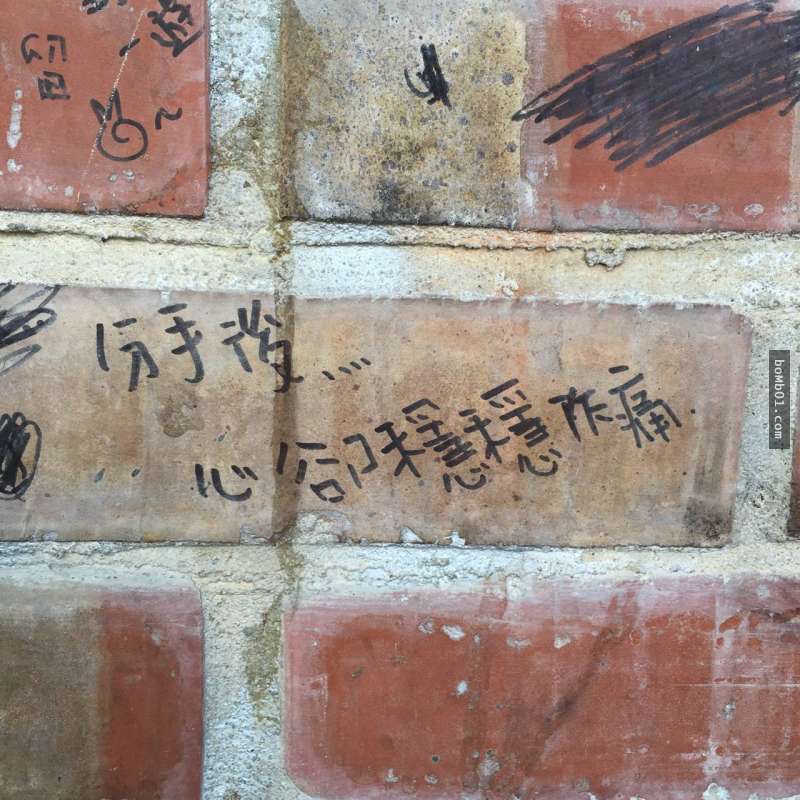 留
分手後...
心卻穩穩作痛.
boMb01.com